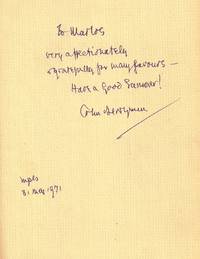 To Marlos
very affectionately
& gratefully for many favours –
Have a Good Summer!
John Berryman
mpls
31 May 1971